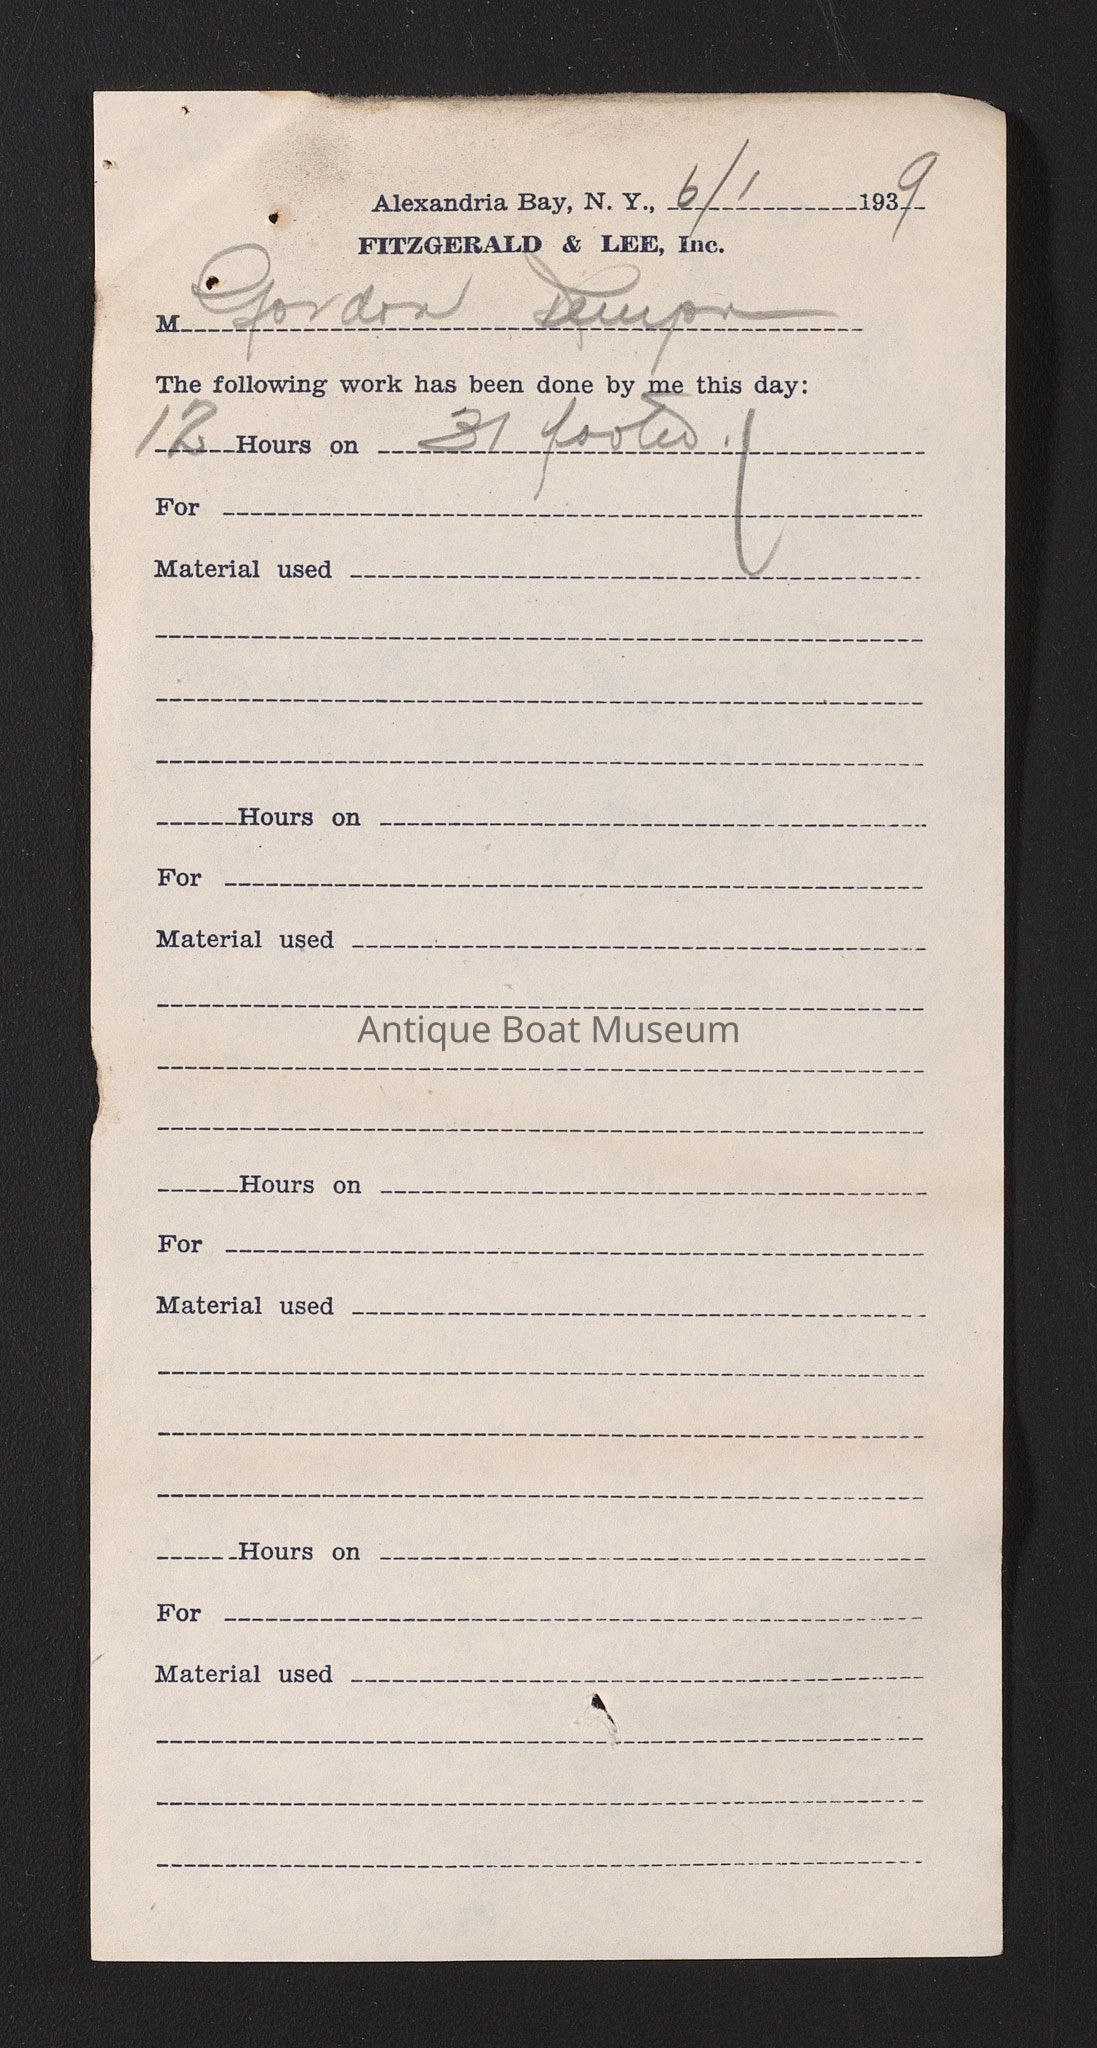 Alexandria Bay, N. Y., 6/1 1939
FITZGERALD & LEE, Inc.
M Gordon
The following work has been done by me this day:
12 Hours on 31 footer.
For
Material used
Hours on
For
Material used
Antique Boat Museum
Hours on
For
Material used
Hours on
For
Material used